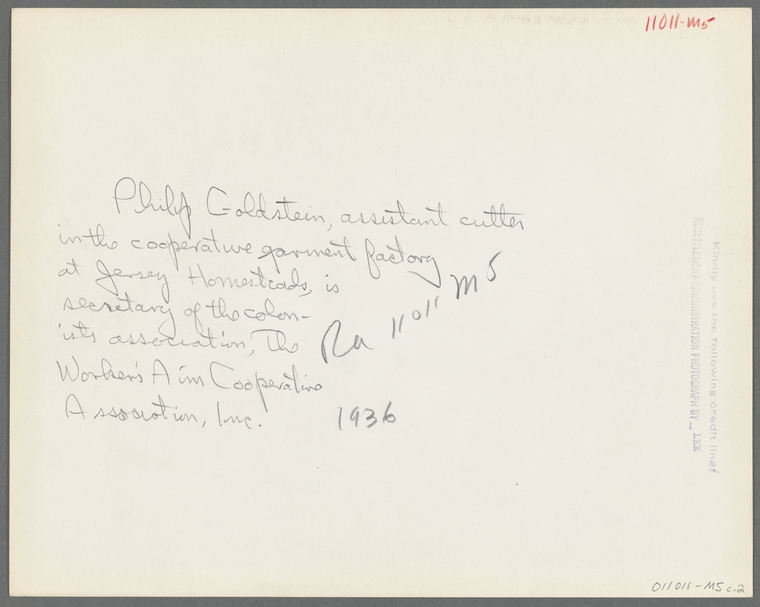 11011-M5
Philip Goldstein, assistant cutter
in the cooperative garment factory
at Jersey Homesteads, is
secretary of the colon-
ists association, The
Worker's Aim Cooperative
Association, Inc.
Ra 11011 M5
1936
Kindly use the following credit line:
RESETTLEMENT ADMINISTRATION PHOTOGRAPH BY LEE
011011-M5 c.2